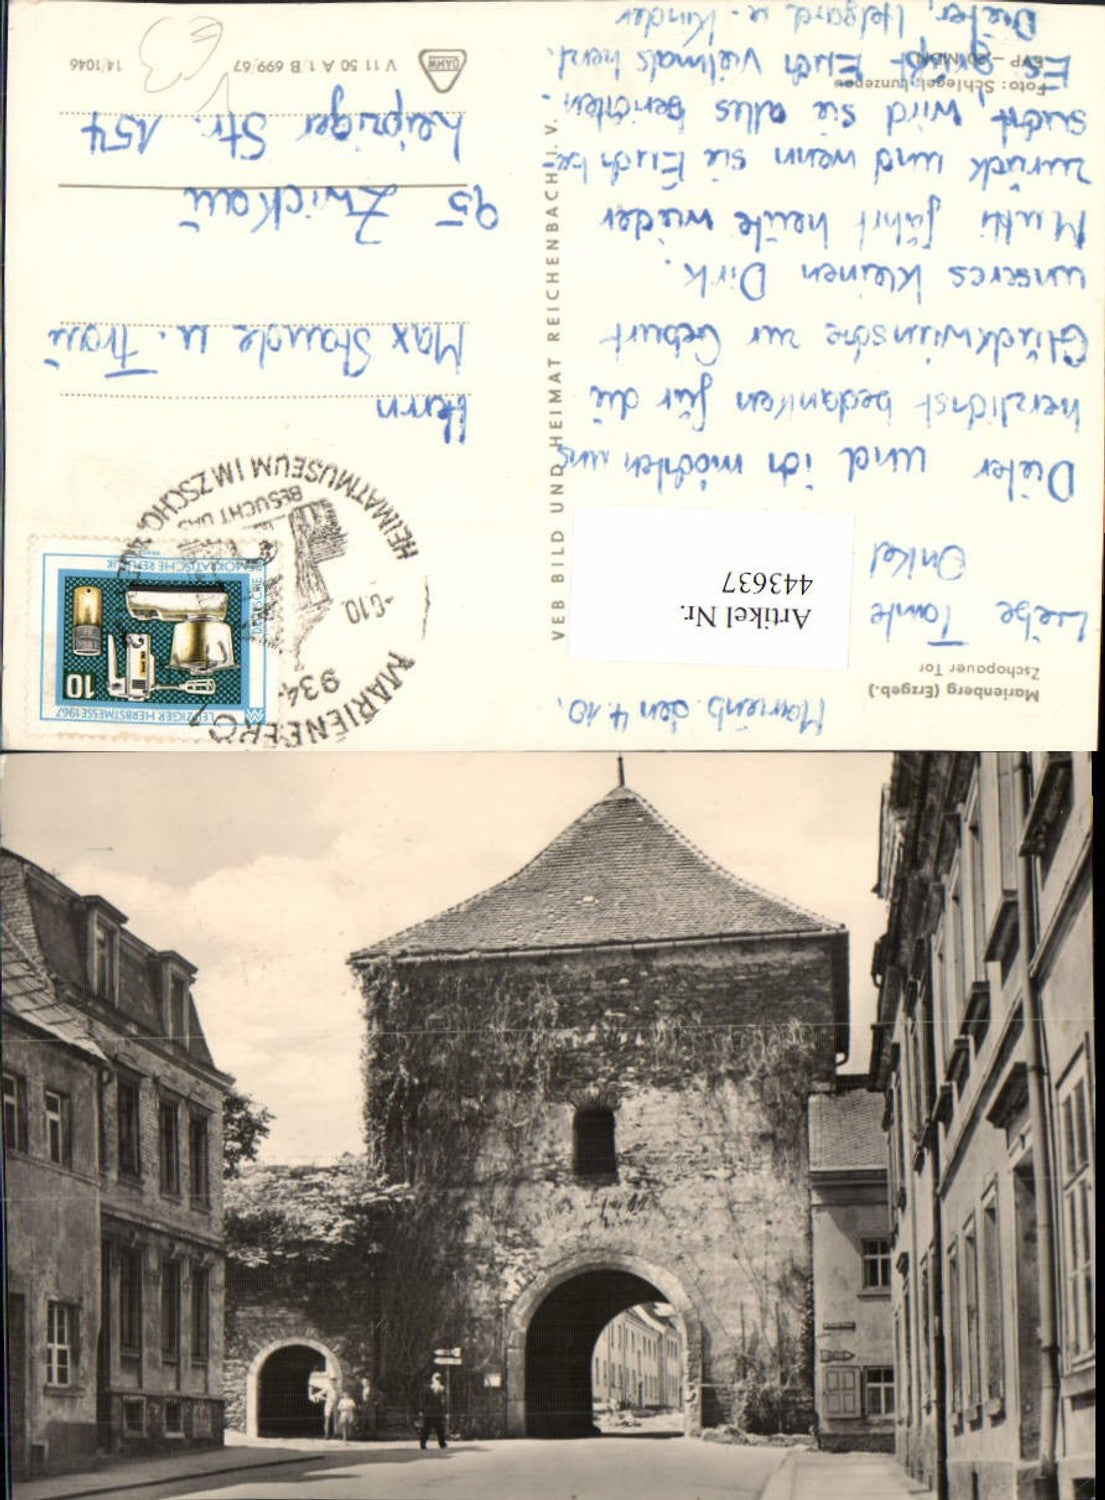 Marienberg (Erzgeb.)
Zschopauer Tor
Marienb. den 4.10.
Liebe Tante
Onkel
Dieter und ich möchten uns
herzlichst bedanken für die
Glückwünsche zur Geburt
unseres kleinen Dirk.
Mutti fährt heute wieder
zurück und wenn sie Euch be-
sucht, wird sie alles berichten.
Es grüßt Euch vielmals herzl.
Dieter, Helgard u. Kinder
Foto: Schlegel, Lunzenau
EVP
Artikel Nr.
443637
VEB BILD UND HEIMAT REICHENBACH I. V.
MARIENBERG
934
-6.10.
BESUCHT DAS
HEIMATMUSEUM IM ZSCHO
LEIPZIGER HERBSTMESSE 1967
10
DEUTSCHE
DEMOKRATISCHE REPUBLIK
Herrn
Max Staude u. Frau
95 Zwickau
Leipziger Str. 154
DAHW
V 11 50 A 1/B 699/67
14/1046